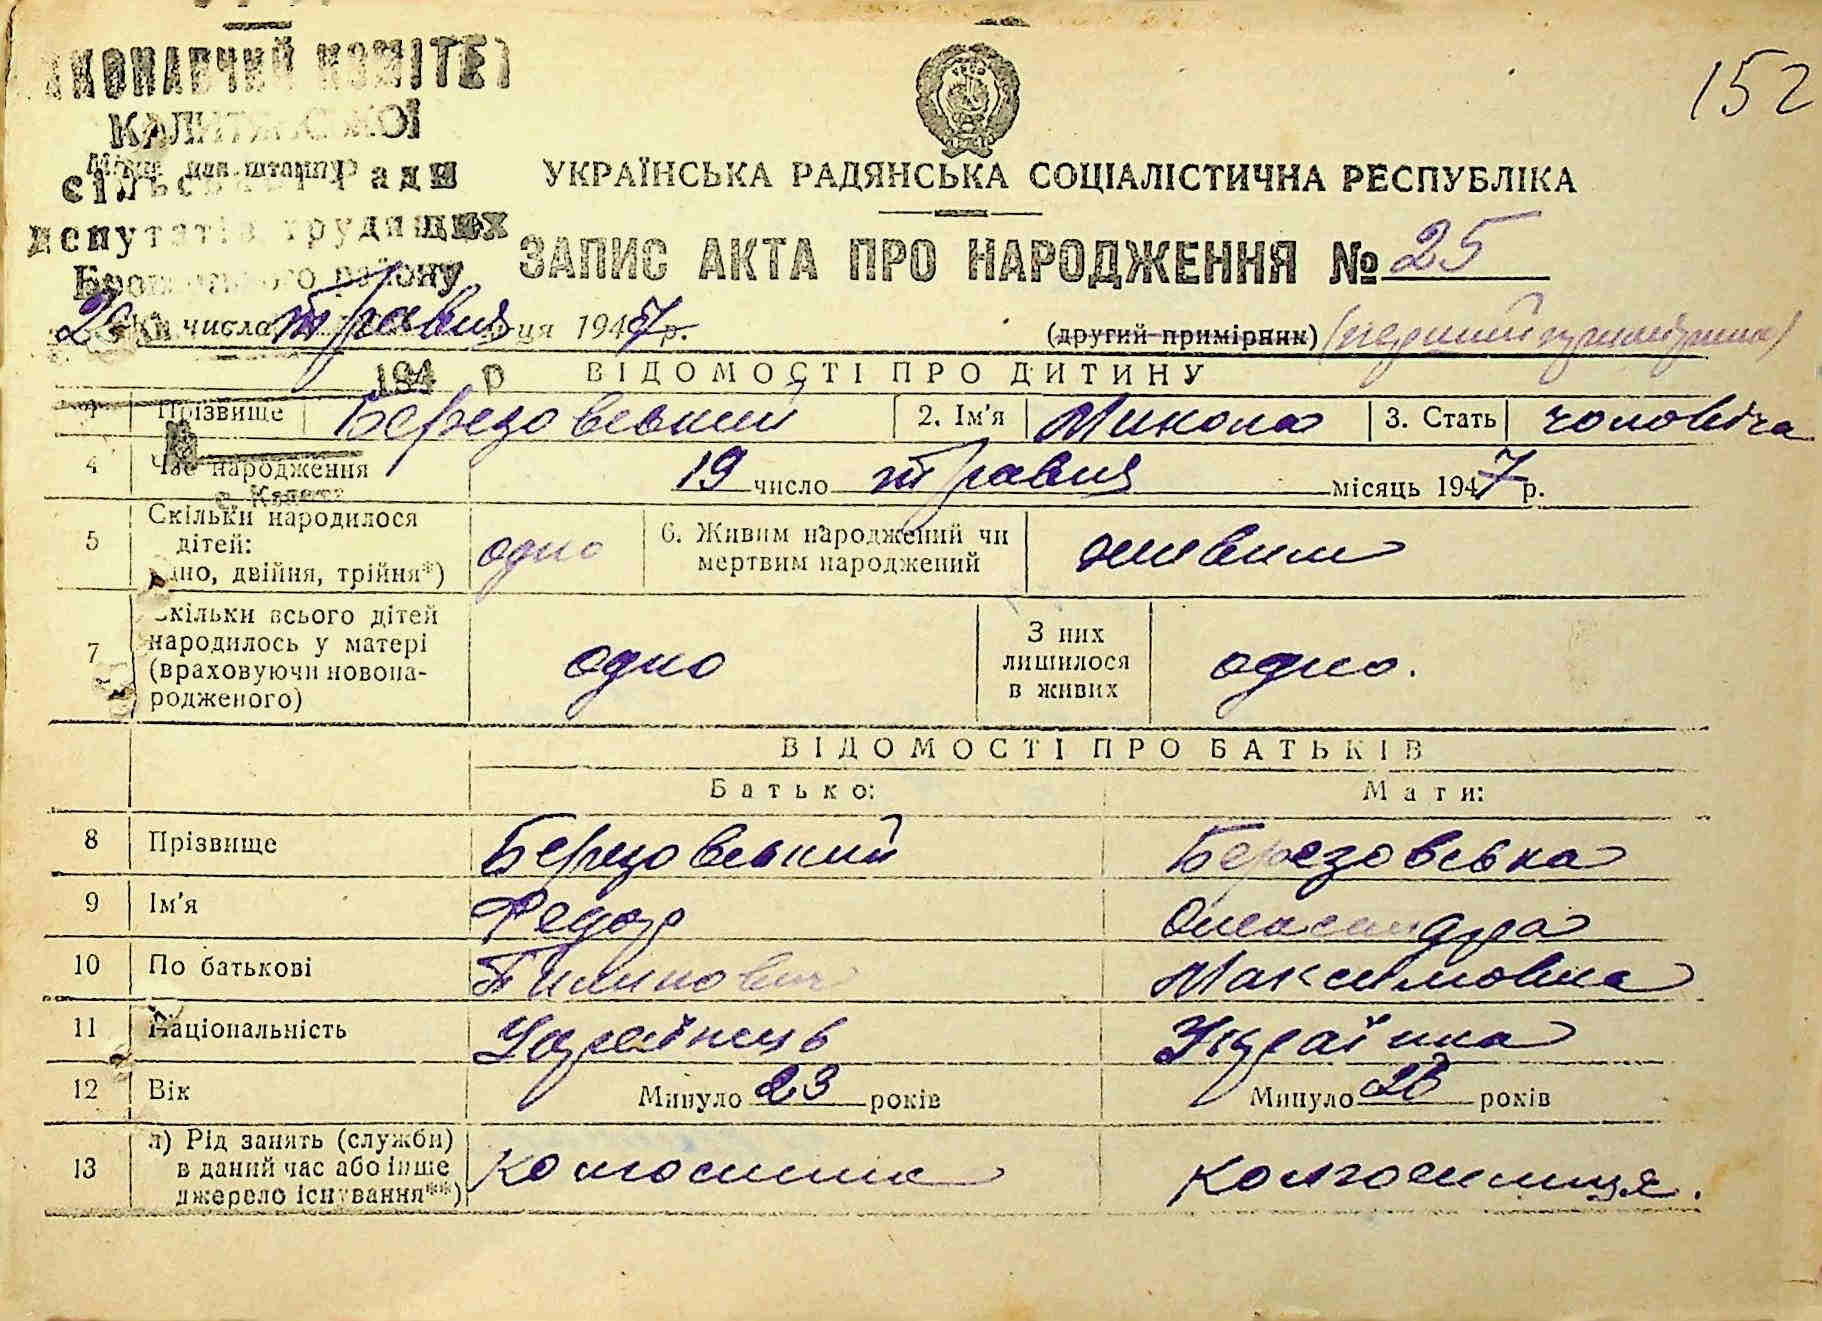 152
КОНАВЧИЙ КОМІТЕТ
КАЛИТЯНСЬКОЇ
Місце для штампу
сільської Ради
депутатів трудящих
Броварського району
УКРАЇНСЬКА РАДЯНСЬКА СОЦІАЛІСТИЧНА РЕСПУБЛІКА
ЗАПИС АКТА ПРО НАРОДЖЕННЯ № 25
20 числа травня ця 1947 р.
(другий примірник) (перший примірник)
194 р
ВІДОМОСТІ ПРО ДИТИНУ
Прізвище Березовський 2. Ім'я Микола 3. Стать чоловіча
4 Час народження 19 число травня місяць 1947 р.
с. Калита
5 Скільки народилося дітей: одно, двійня, трійня*) одно 6. Живим народжений чи мертвим народжений живим
7 Скільки всього дітей народилось у матері (враховуючи новона-родженого) одно З них лишилося в живих одно.
ВІДОМОСТІ ПРО БАТЬКІВ
Батько: Мати:
8 Прізвище Березовський Березовська
9 Ім'я Федор Олександра
10 По батькові Пилипович Максимовна
11 Національність Українець Українка
12 Вік Минуло 23 років Минуло років
13 а) Рід занять (служби) в даний час або інше джерело існування**) Колгоспник Колгоспниця.